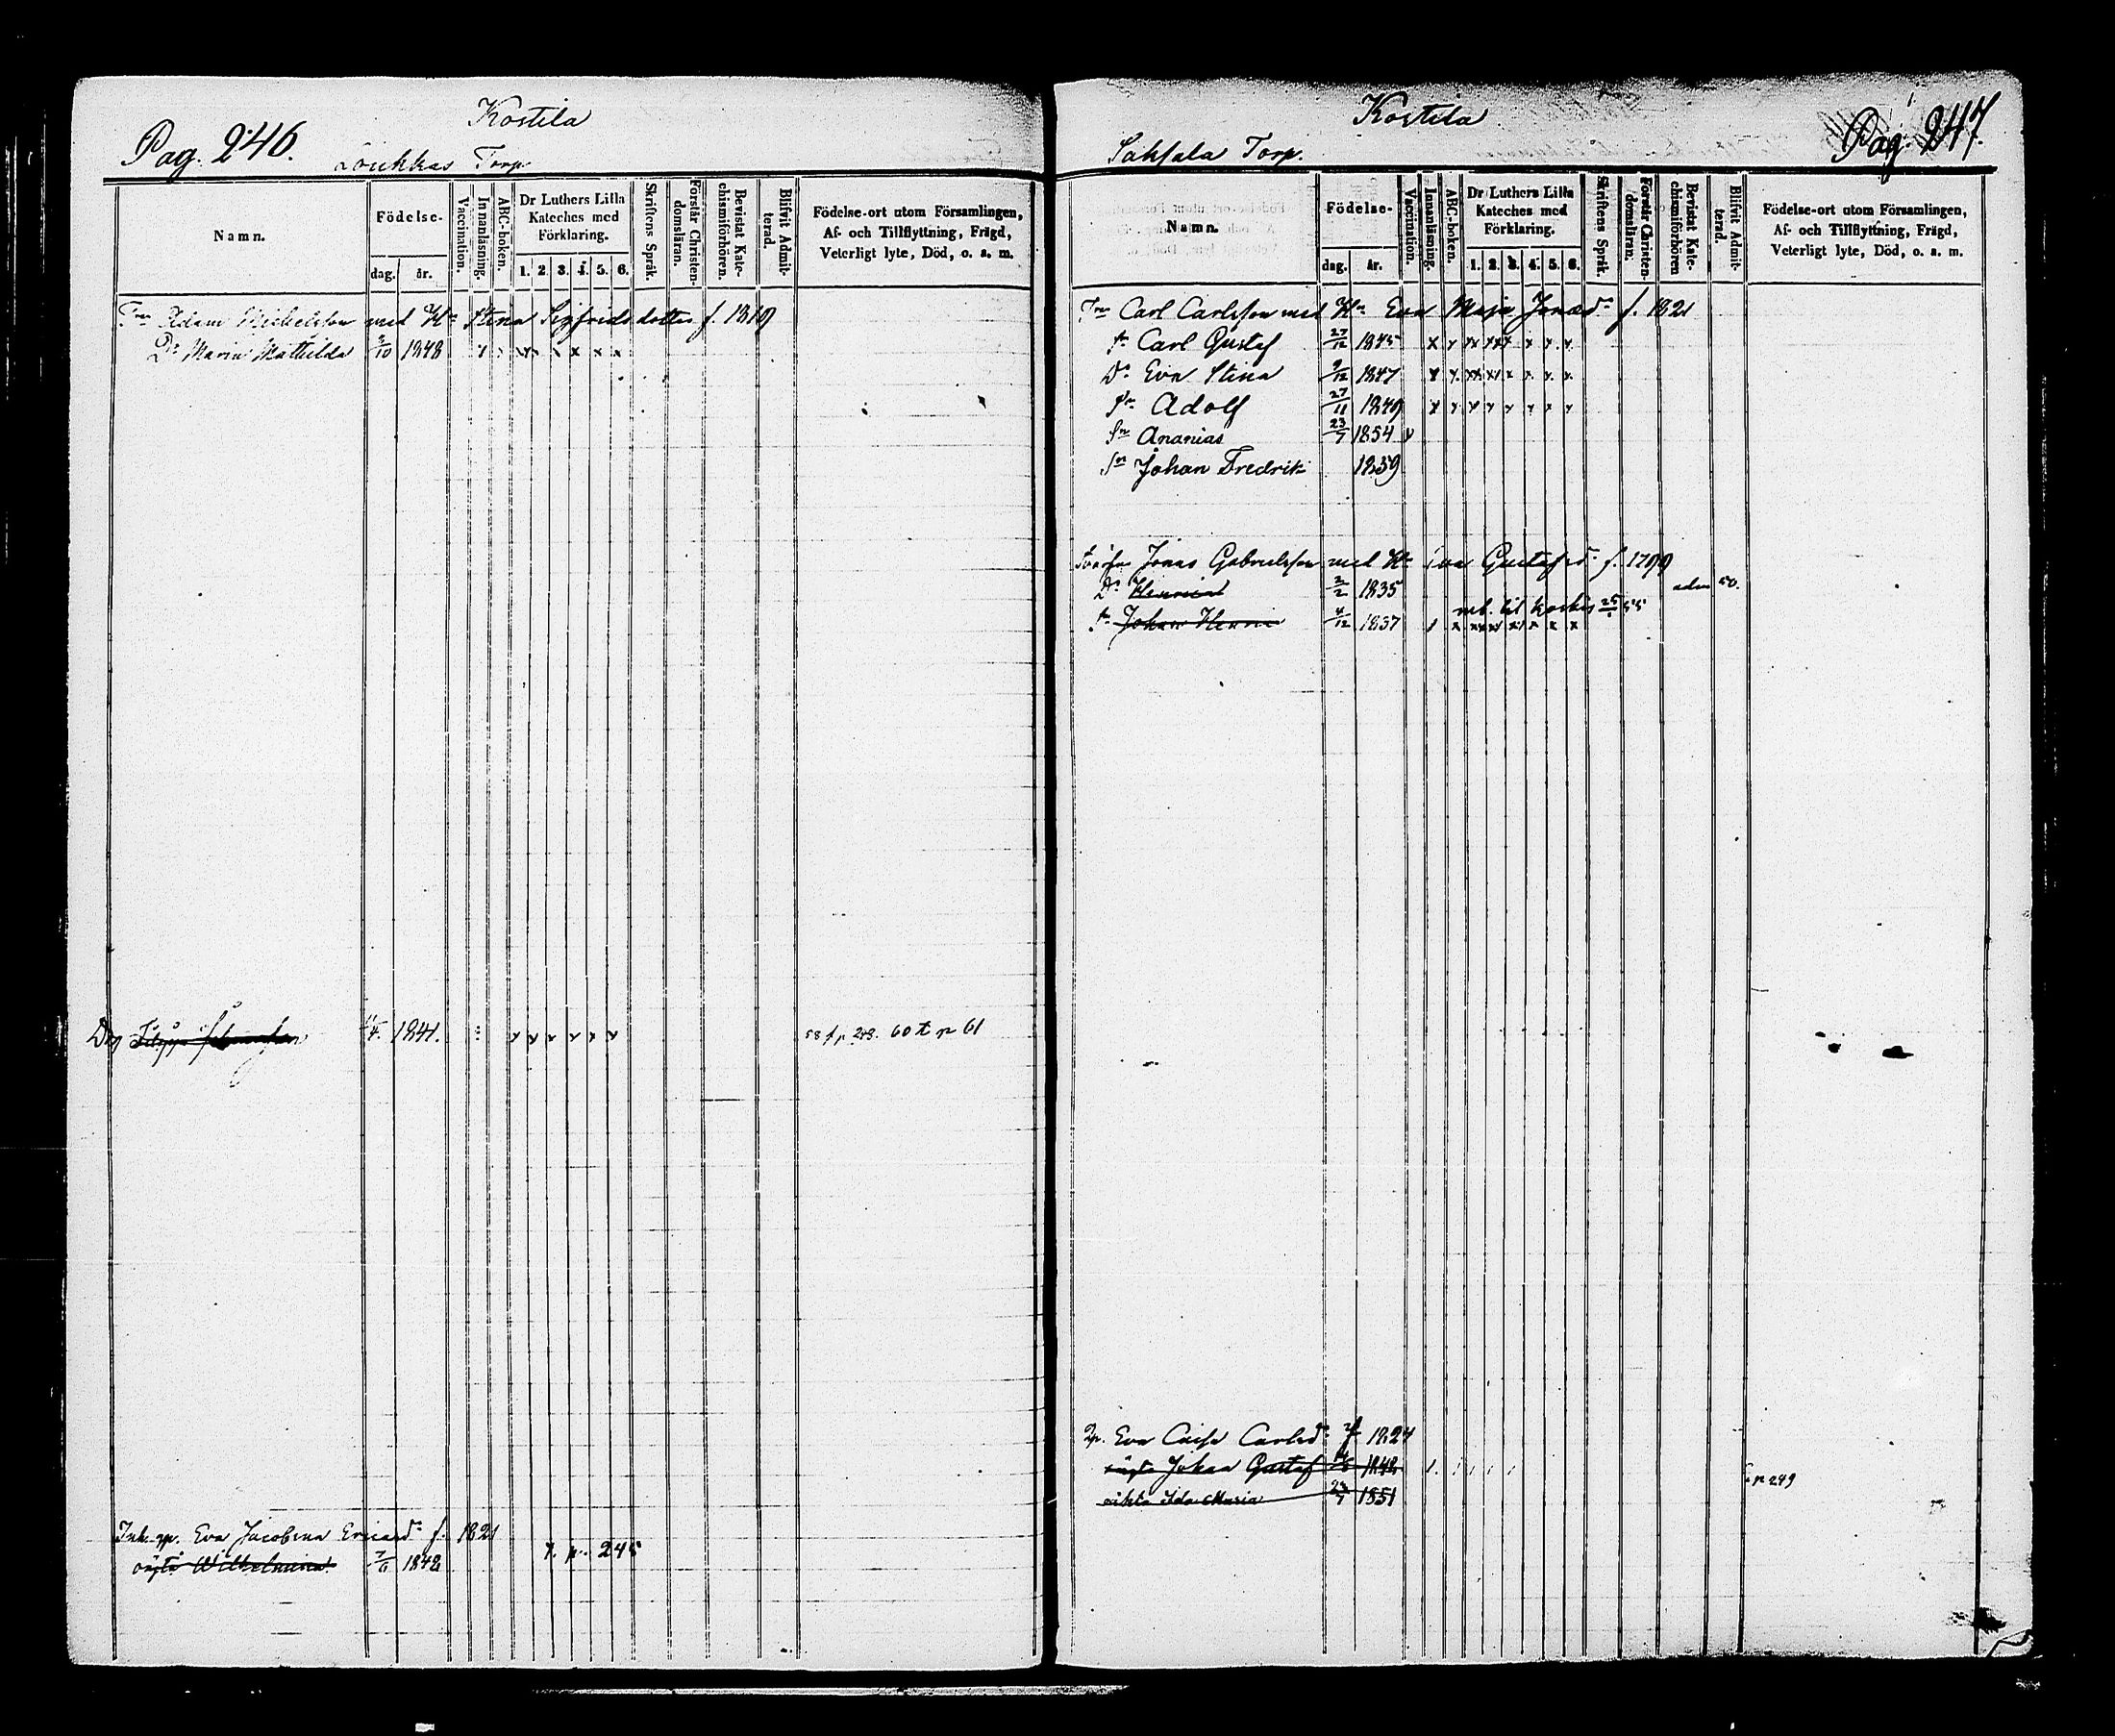 Kostila
Pag. 246.
Loukkas Torp
Namn.
Födelse-
dag. år.
Vaccination.
Innanläsning.
ABC-boken.
Dr Luthers Lilla Kateches med Förklaring.
1. 2. 3. 4. 5. 6.
Skriftens Språk.
Förstår Christendomsläran.
Bevistat Katechismiförhören.
Blifvit Admitterad.
Födelse-ort utom Församlingen,
Af- och Tillflyttning, Frägd,
Veterligt lyte, Död, o. s. m.
Adam Michelsson med Hu Stina Sigfrids dotter f. 1819
Dr Maria Mathilda 2/10 1848 x x x x x x
Dg 1841. x x x x x x 58 f p 243. 60 t p 61
Inh. qp. Eva Jacobina Ericsd. f. 1821
oägta Wilhelmina 1848 p. 245
Kostila
Pag. 247.
Sahsala Torp.
Namn.
Födelse-
dag. år.
Vaccination.
Innanläsning.
ABC-boken.
Dr Luthers Lilla Kateches med Förklaring.
1. 2. 3. 4. 5. 6.
Skriftens Språk.
Förstår Christendomsläran.
Bevistat Katechismiförhören
Blifvit Admitterad.
Födelse-ort utom Församlingen,
Af- och Tillflyttning, Frägd,
Veterligt lyte, Död, o. s. m.
Carl Carlsson med Hu Eva Maja Jonæd. f. 1821
Sn Carl Gustaf 27/12 1845 x x xx xxx x x x
Dr Eva Stina 9/12 1847 x x xx xx x x x x
Sn Adolf 27/11 1849 x x x x x x x x
Sn Ananias 23/7 1854 v
Sn Johan Fredrik 1859
Jonas Gabrielsson med Hu Eva Gustafsd. f. 1799
Dr Henrica 2/2 1835 adm 50.
Sn Johan Henric 4/12 1837
Qp. Eva Caisa Carlsd. 1824
oägta Johan Gustaf 1848 p 249
oäkta Ida Maria 1851